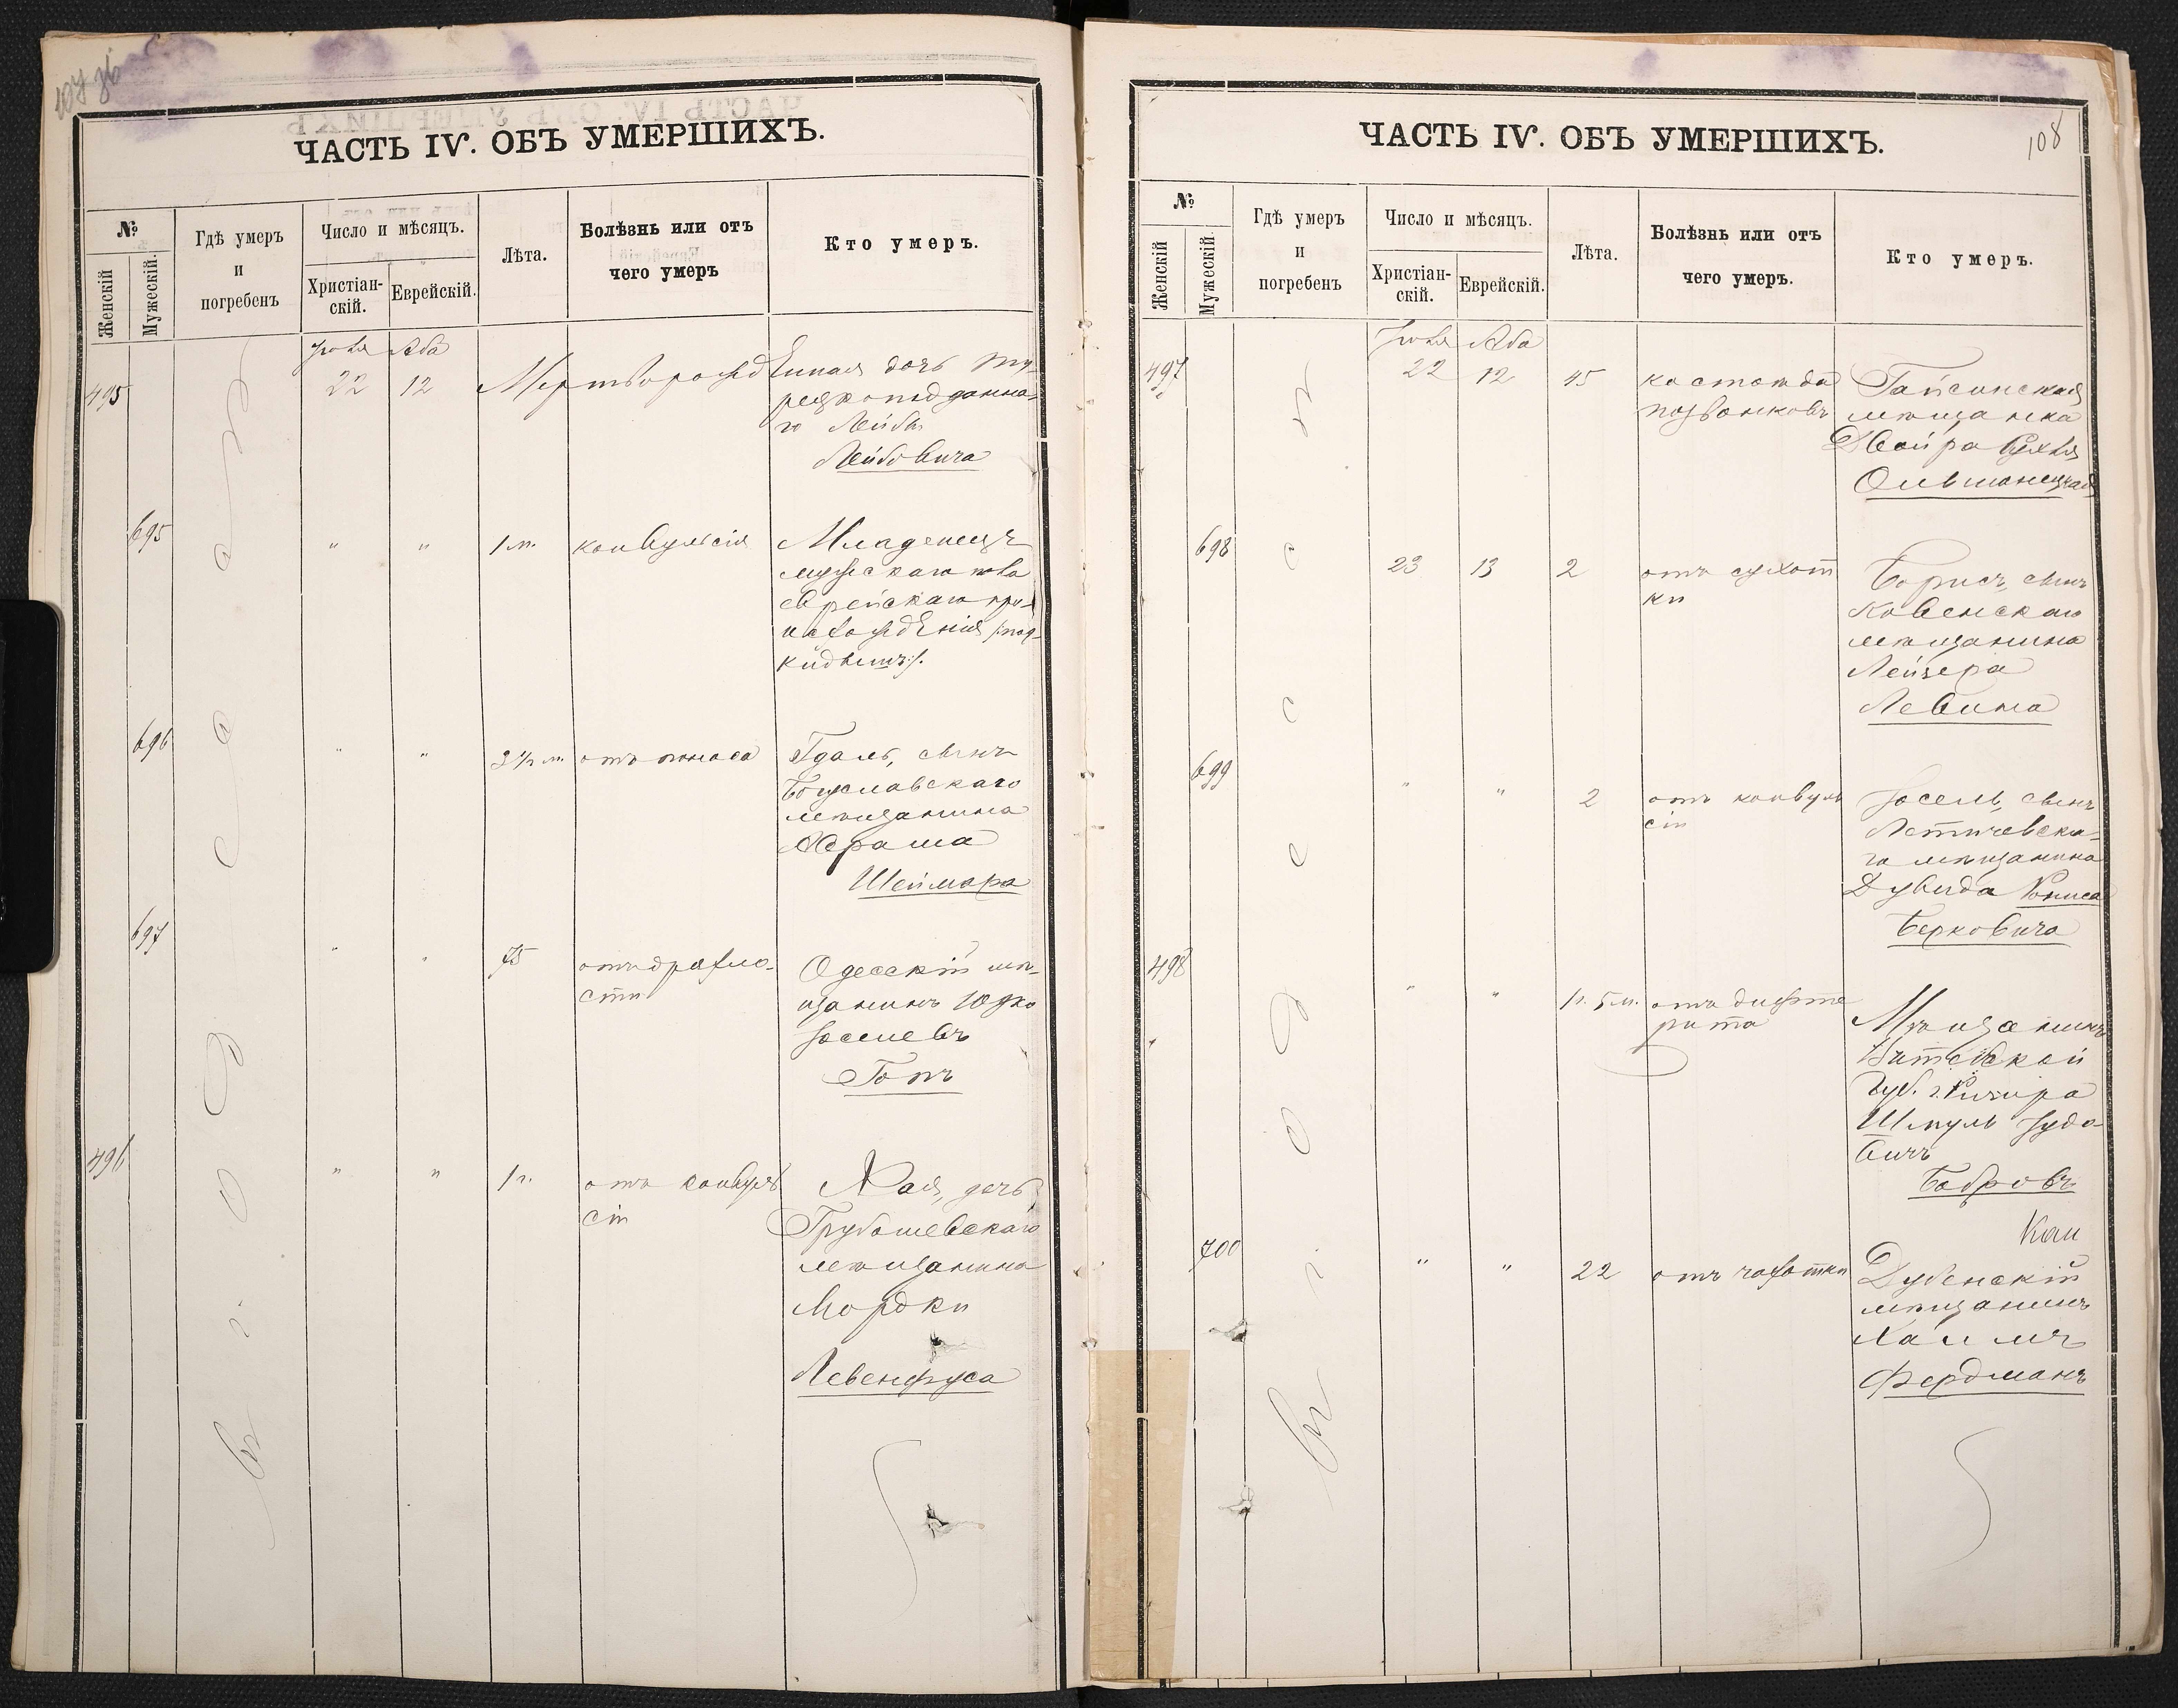 ЧАСТЬ IV. ОБЪ УМЕРШИХЪ.
№
Женскій
Мужескій.
Гдѣ умеръ
и
погребенъ
Число и мѣсяцъ.
Христіан-
скій.
Еврейскій.
Лѣта.
Болѣзнь или отъ
чего умеръ
Кто умеръ.
въ городѣ Одессѣ
Іюля Аба
495 22 12 Мертворожденная дочь ту-
рецкоподданна-
го Лейбы
Лейбовича
695 " " 1 м. конвульсія Младенецъ
мужскаго пола
еврейскаго про-
исхожденія /:под-
кидышъ:/.
696 " " 3½ м. отъ поноса Гдаль, сынъ
Богуславскаго
мѣщанина
Абрама
Шеймара
697 " " 75 отъ дряхло-
сти
Одесскій мѣ-
щанинъ Юдко
Іоселевъ
Гопъ
496 " " 1 г. отъ конвуль
сіи
Хая, дочь
Грубошевскаго
мѣщанина
Мордки
Левенфуса
108
ЧАСТЬ IV. ОБЪ УМЕРШИХЪ.
№
Женскій
Мужескій.
Гдѣ умеръ
и
погребенъ
Число и мѣсяцъ.
Христіан-
скій.
Еврейскій.
Лѣта.
Болѣзнь или отъ
чего умеръ.
Кто умеръ.
въ г. Одессѣ
Іюля Аба
497 22 12 45 костоѣда
позвонковъ
Гайсинская
мѣщанка
Двойра Рухля
Ольшанецкая
698 23 13 2 отъ сухот
ки
Борисъ, сынъ
Ковенскаго
мѣщанина
Лейзера
Левина
699 " " 2 отъ конвуль
сіи
Іосель, сынъ
Летичевска-
го мѣщанина
Дувида
Берковича
498 " " 1 г. 5 м. отъ дифте
рита
Мѣщанинъ
Витебской
губ. г.
Шмуль Іудо
вичъ
Бобровъ
700 " " 22 отъ чахотки Дубенскій
мѣщанинъ
Хаимъ
Фердманъ